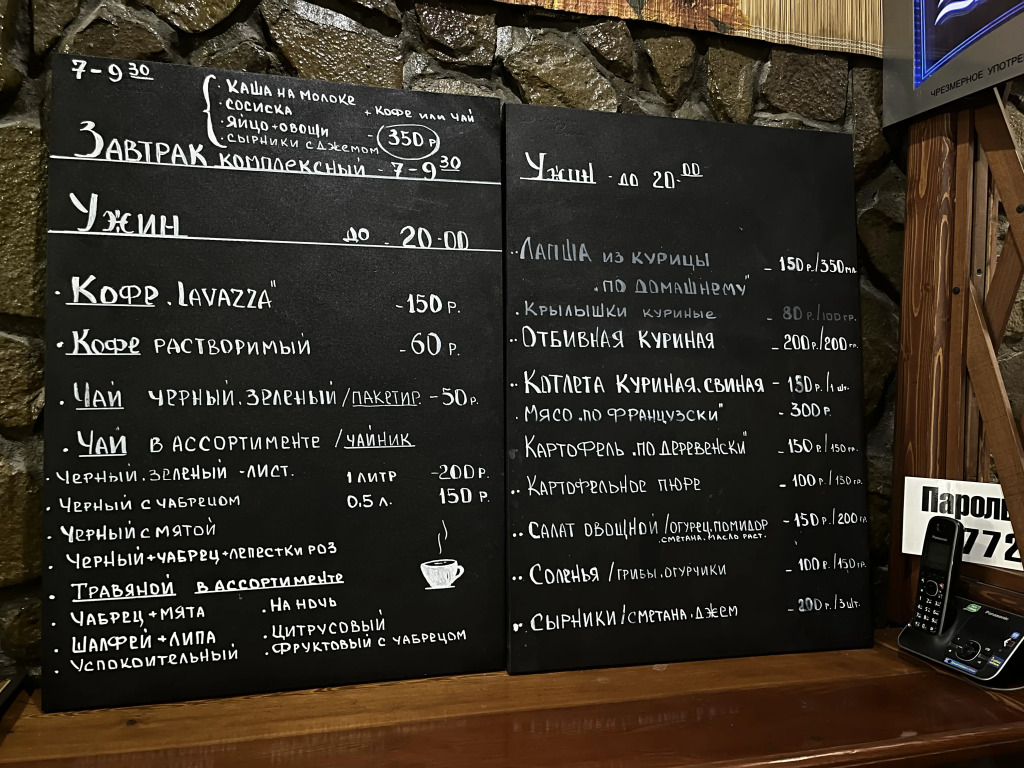 7-9 30
· КАША НА МОЛОКЕ
· СОСИСКА + КОФЕ ИЛИ ЧАЙ
· ЯЙЦО+ОВОЩИ
· СЫРНИКИ С ДЖЕМОМ - 350 Р
ЗАВТРАК КОМПЛЕКСНЫЙ - 7-9 30
УЖИН ДО - 20-00
· КОФЕ "LAVAZZA" -150 Р.
· КОФЕ РАСТВОРИМЫЙ -60 Р.
· ЧАЙ ЧЕРНЫЙ.ЗЕЛЕНЫЙ /ПАКЕТИР -50 Р.
· ЧАЙ В АССОРТИМЕНТЕ /ЧАЙНИК
· ЧЕРНЫЙ.ЗЕЛЕНЫЙ -ЛИСТ. 1 ЛИТР -200 Р.
· ЧЕРНЫЙ С ЧАБРЕЦОМ 0.5 Л. 150 Р.
· ЧЕРНЫЙ С МЯТОЙ
· ЧЕРНЫЙ+ЧАБРЕЦ+ЛЕПЕСТКИ РОЗ
· ТРАВЯНОЙ В АССОРТИМЕНТЕ
· ЧАБРЕЦ+МЯТА
· ШАЛФЕЙ+ЛИПА
· УСПОКОИТЕЛЬНЫЙ
· НА НОЧЬ
· ЦИТРУСОВЫЙ
· ФРУКТОВЫЙ С ЧАБРЕЦОМ
УЖИН - ДО 20-00
·· ЛАПША ИЗ КУРИЦЫ - 150 Р./350 МЛ.
"ПО ДОМАШНЕМУ"
· КРЫЛЫШКИ КУРИНЫЕ - 80 Р./100 ГР.
·· ОТБИВНАЯ КУРИНАЯ - 200 Р./200 ГР.
·· КОТЛЕТА КУРИНАЯ.СВИНАЯ - 150 Р./1 ШТ.
· МЯСО "ПО ФРАНЦУЗСКИ" - 300 Р.
· КАРТОФЕЛЬ "ПО ДЕРЕВЕНСКИ" - 150 Р./150 ГР.
·· КАРТОФЕЛЬНОЕ ПЮРЕ - 100 Р./150 ГР.
·· САЛАТ ОВОЩНОЙ /ОГУРЕЦ.ПОМИДОР - 150 Р./200 ГР.
СМЕТАНА.МАСЛО РАСТ.
·· СОЛЕНЬЯ /ГРИБЫ.ОГУРЧИКИ - 100 Р./150 ГР.
· СЫРНИКИ/СМЕТАНА.ДЖЕМ - 200 Р./3 ШТ.
ЧРЕЗМЕРНОЕ УПОТРЕ
Пароль
772
Panasonic
Panasonic